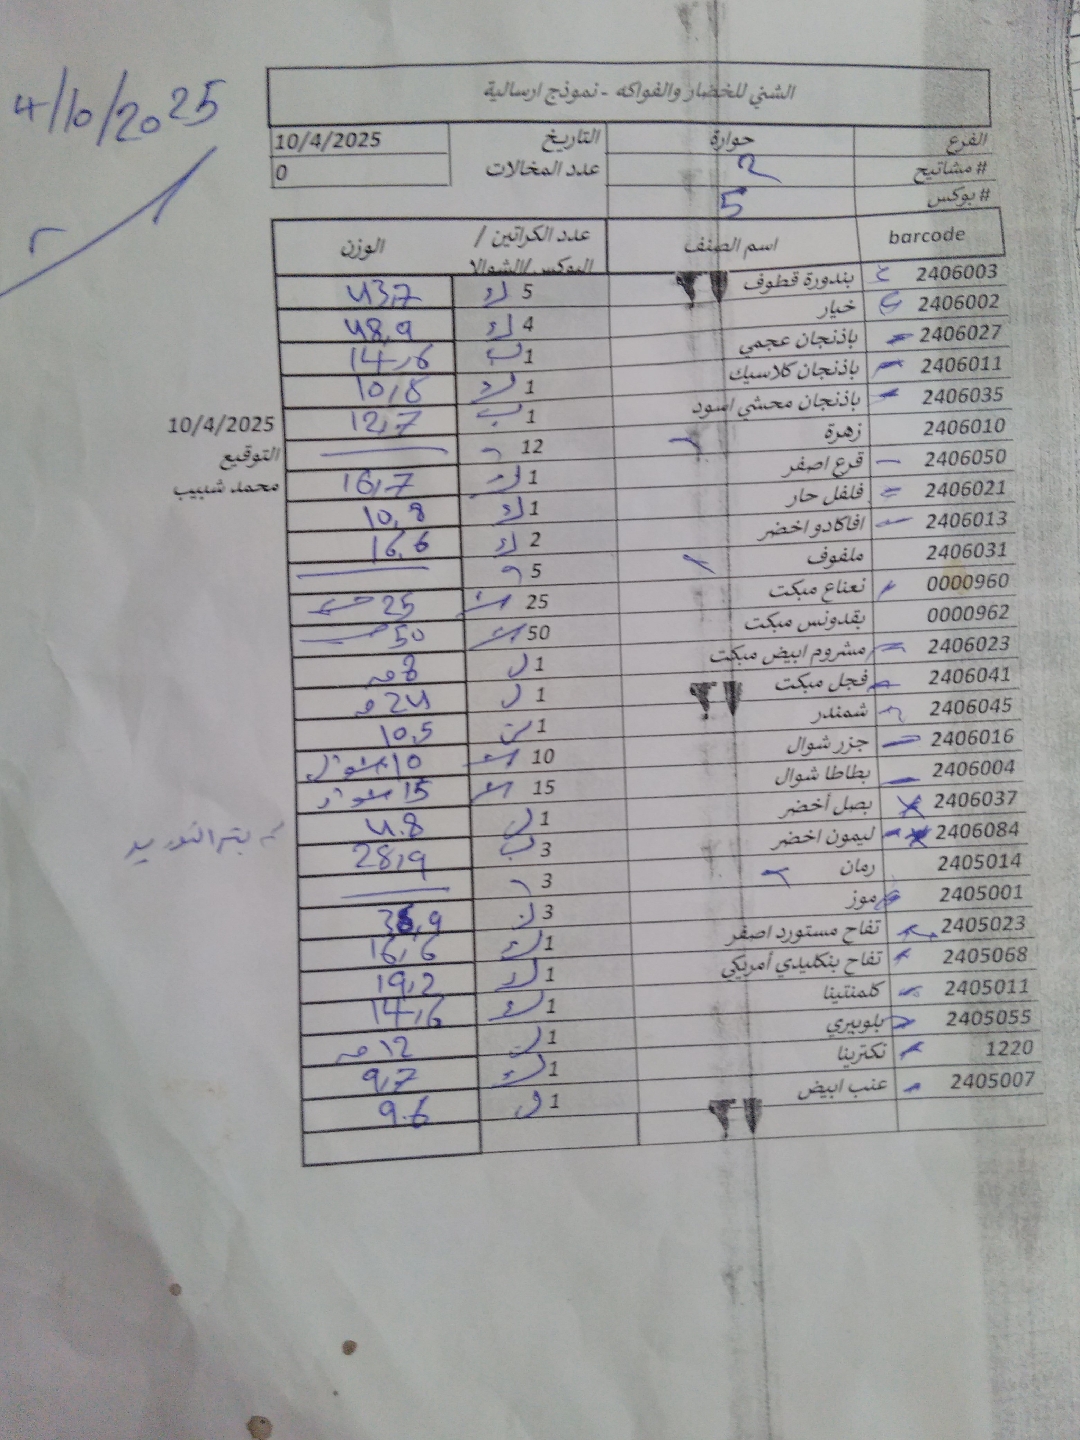 4/10/2025
الشني للخضار والفواكه - نموذج ارسالية
الفرع حوارة التاريخ 10/4/2025
# مشاتيح 2 عدد المخالات 0
# بوكس 5
barcode اسم الصنف عدد الكراتين / البوكس/الشوالا الوزن
2406003 بندورة قطوف 5 ك 43,7
2406002 خيار 4 ك 48,9
2406027 باذنجان عجمي 1 ب 14,6
2406011 باذنجان كلاسيك 1 ك 10,8
2406035 باذنجان محشي اسود 1 ب 12,7
2406010 زهرة 12
2406050 قرع اصفر 1 ك 16,7
2406021 فلفل حار 1 ك 10,8
2406013 افاكادو اخضر 2 ك 16,6
2406031 ملفوف 5
0000960 نعناع مبكت 25 25
0000962 بقدونس مبكت 50 50
2406023 مشروم ابيض مبكت 1 8
2406041 فجل مبكت 1 24
2406045 شمندر 1 10,5
2406016 جزر شوال 10 10 شوال
2406004 بطاطا شوال 15 15 شوال
2406037 بصل أخضر 1 4.8
2406084 ليمون اخضر 3 ب 28,9
2405014 رمان 3
2405001 موز 3 36,9
2405023 تفاح مستورد اصفر 1 ك 16,6
2405068 تفاح بنكليدي أمريكي 1 ك 19,2
2405011 كلمنتينا 1 ك 14,6
2405055 بلوبيري 1 12
1220 نكترينا 1 ك 9,7
2405007 عنب ابيض 1 9.6
10/4/2025
التوقيع
محمد شبيب